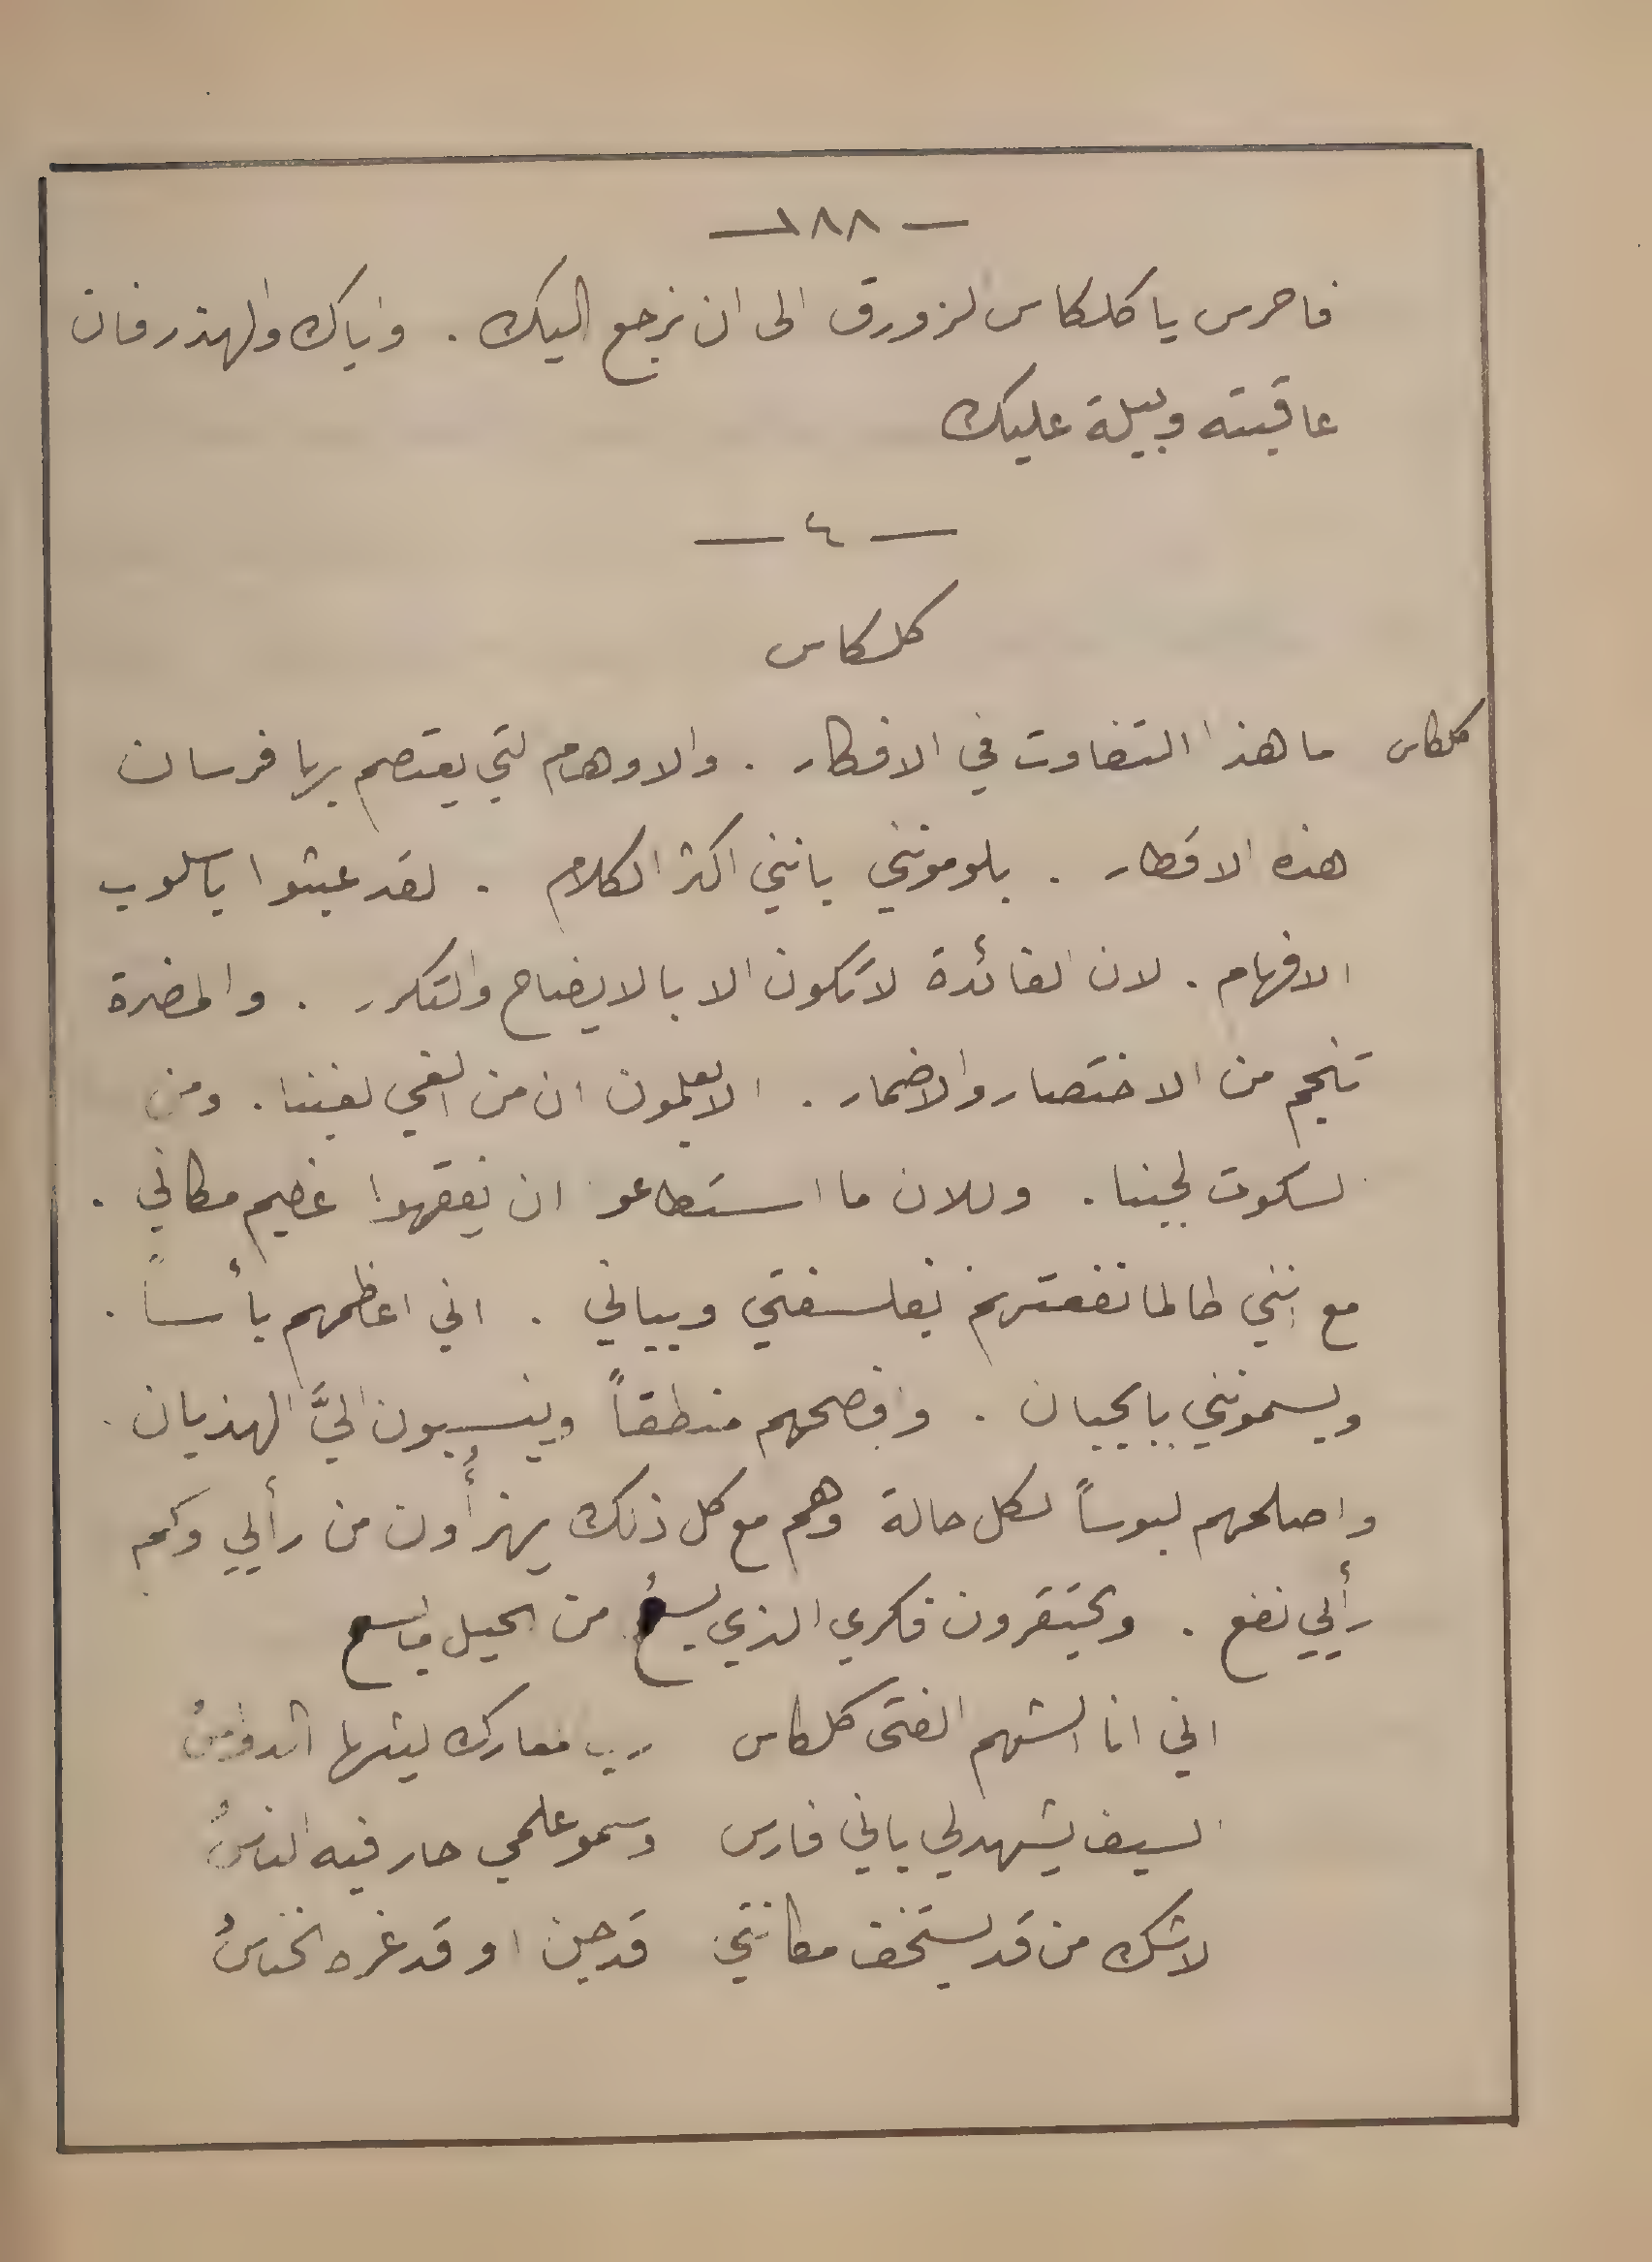 — ١٨٨ —
فاحرس يا كلكاس الزورق الى ان نرجع اليك . واياك والهذر فان
عاقبته وبيلة عليك
— ٤ —
كلكاس
كلكاس ما هذا التفاوت في الافكار . والاوهام التي يعتصم بها فرسان
هذه الاقطار . يلومونني بانني اكثر الكلام . لقد عبثوا باسلوب
الافهام . لان الفائدة لا تكون الا بالايضاح والتكرر . والمضرة
تنجم من الاختصار والاضمار . الا يعلمون ان من العي لغبنا . ومن
السكوت لجبنا . وللان ما استطاعو ان يفقهوا عضيم مكاني .
مع انني طالما نفعتهم بفلسفتي وبياني . اني اعظمهم بأساً .
ويسمونني بالجبان . وافصحهم منطقاً وينسبون اليَّ الهذيان .
واصلحهم لبوساً لكل حالة وهم مع كل ذلك يهزأُون من رأيي وكم
رأيي نفع . ويحتقرون فكري الذي يسعُ من الحيل ما يسع
اني انا الشهم الفتى كلكاس رب معارك ليثها
السيف يشهد لي باني فارس وسمو علمي حار فيه الناسُ
لا شك من قد يستخف مكانتي قد جن او قد غره الخناسُ